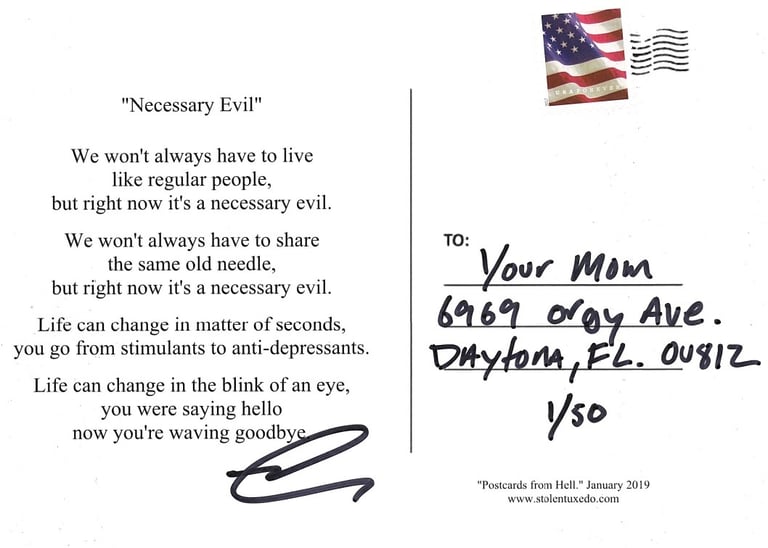 USA FOREVER
"Necessary Evil"
We won't always have to live
like regular people,
but right now it's a necessary evil.
We won't always have to share
the same old needle,
but right now it's a necessary evil.
Life can change in matter of seconds,
you go from stimulants to anti-depressants.
Life can change in the blink of an eye,
you were saying hello
now you're waving goodbye.
TO:
Your Mom
6969 orgy Ave.
DAytonA, FL. OU812
1/50
"Postcards from Hell." January 2019
www.stolentuxedo.com